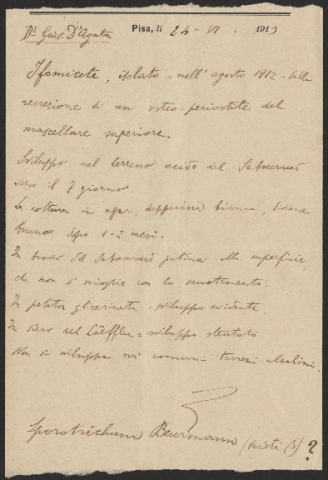 Dr Gius. D'Agata
Pisa, li 24 - VI - 1913
Ifomicete, isolato nell'agosto 1912 - dalla
secrezione di un osteo-periostite del
mascellare superiore.
Sviluppo nel terreno acido del Sabouraud
dopo il 7 giorno.
La coltura in agar, dapprima bianca, diviene
bruna dopo 1-2 mesi.
In brodo del Sabouraud patina alla superficie,
che non si scioglie con lo scuotimento.
In patata glicerinata - sviluppo evidente
In siero del Löeffler - sviluppo stentato
Non si sviluppa nei comuni terreni alcalini.
Sporotrichum Beurmanni (varietà β) ?